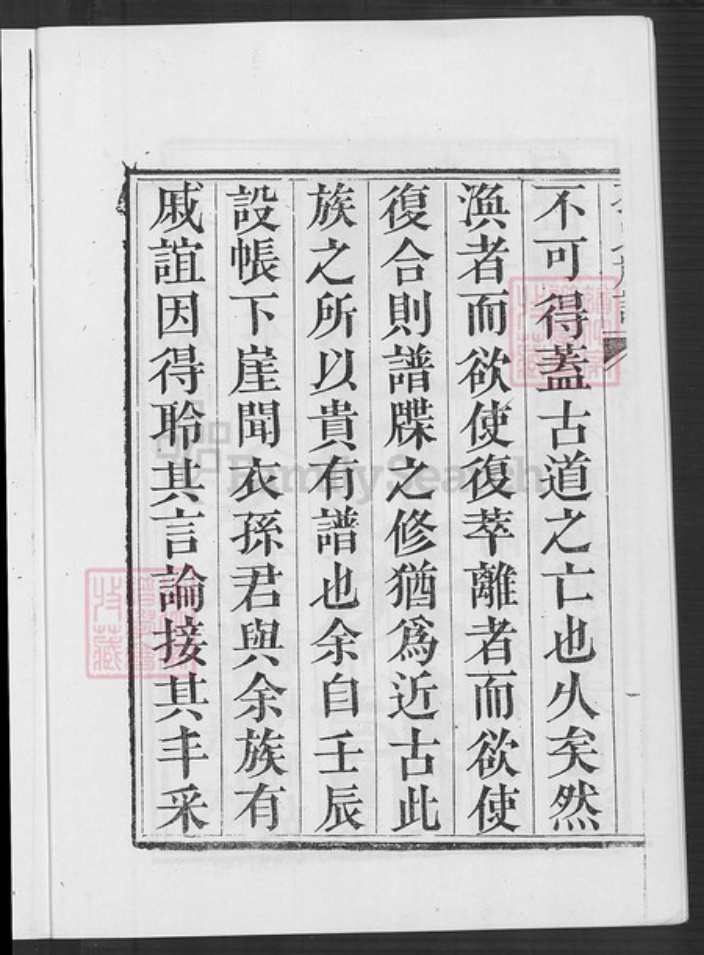 不可得蓋古道之亡也久矣然
渙者而欲使復萃離者而欲使
復合則譜牒之修猶爲近古此
族之所以貴有譜也余自壬辰
設帳下崖聞衣孫君與余族有
戚誼因得聆其言論接其丰采
FamilySearch